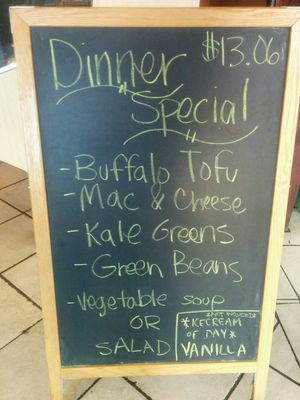 Dinner $13.06
Special
- Buffalo Tofu
- Mac & Cheese
- Kale Greens
- Green Beans
- Vegetable soup
OR
SALAD
*ICECREAM
OF DAY*
VANILLA